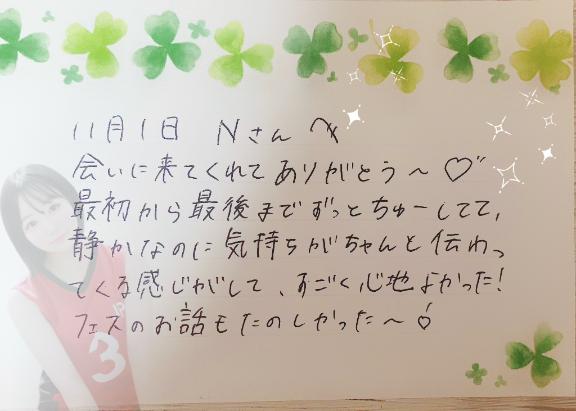 11月1日 Nさんへ
会いに来てくれてありがとう～♡
最初から最後までずっとちゅーしてて、
静かなのに気持ちがちゃんと伝わっ
てくる感じがして、すごく心地よかった!
フェスのお話もたのしかった～
3